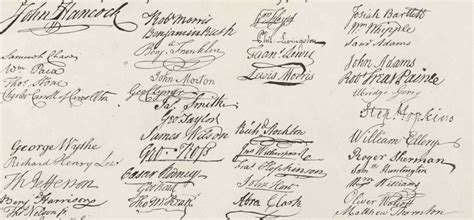 John Hancock
Samuel Chase
Wm Paca
Thos Stone
Charles Carroll of Carrollton
George Wythe
Richard Henry Lee
Th Jefferson
Benj Harrison
Thos Nelson jr
Robt Morris
Benjamin Rush
Benj Franklin
John Morton
Geo Clymer
Jas Smith
Geo Taylor
James Wilson
Geo Ross
Caesar Rodney
Geo Read
Tho M:Kean
Wm Floyd
Phil. Livingston
Frans Lewis
Lewis Morris
Richd Stockton
Jno Witherspoon
Fras Hopkinson
John Hart
Abra Clark
Josiah Bartlett
Wm Whipple
Saml Adams
John Adams
Robt Treat Paine
Elbridge Gerry
Step Hopkins
William Ellery
Roger Sherman
Sam Huntington
Wm Williams
Oliver Wolcott
Matthew Thornton